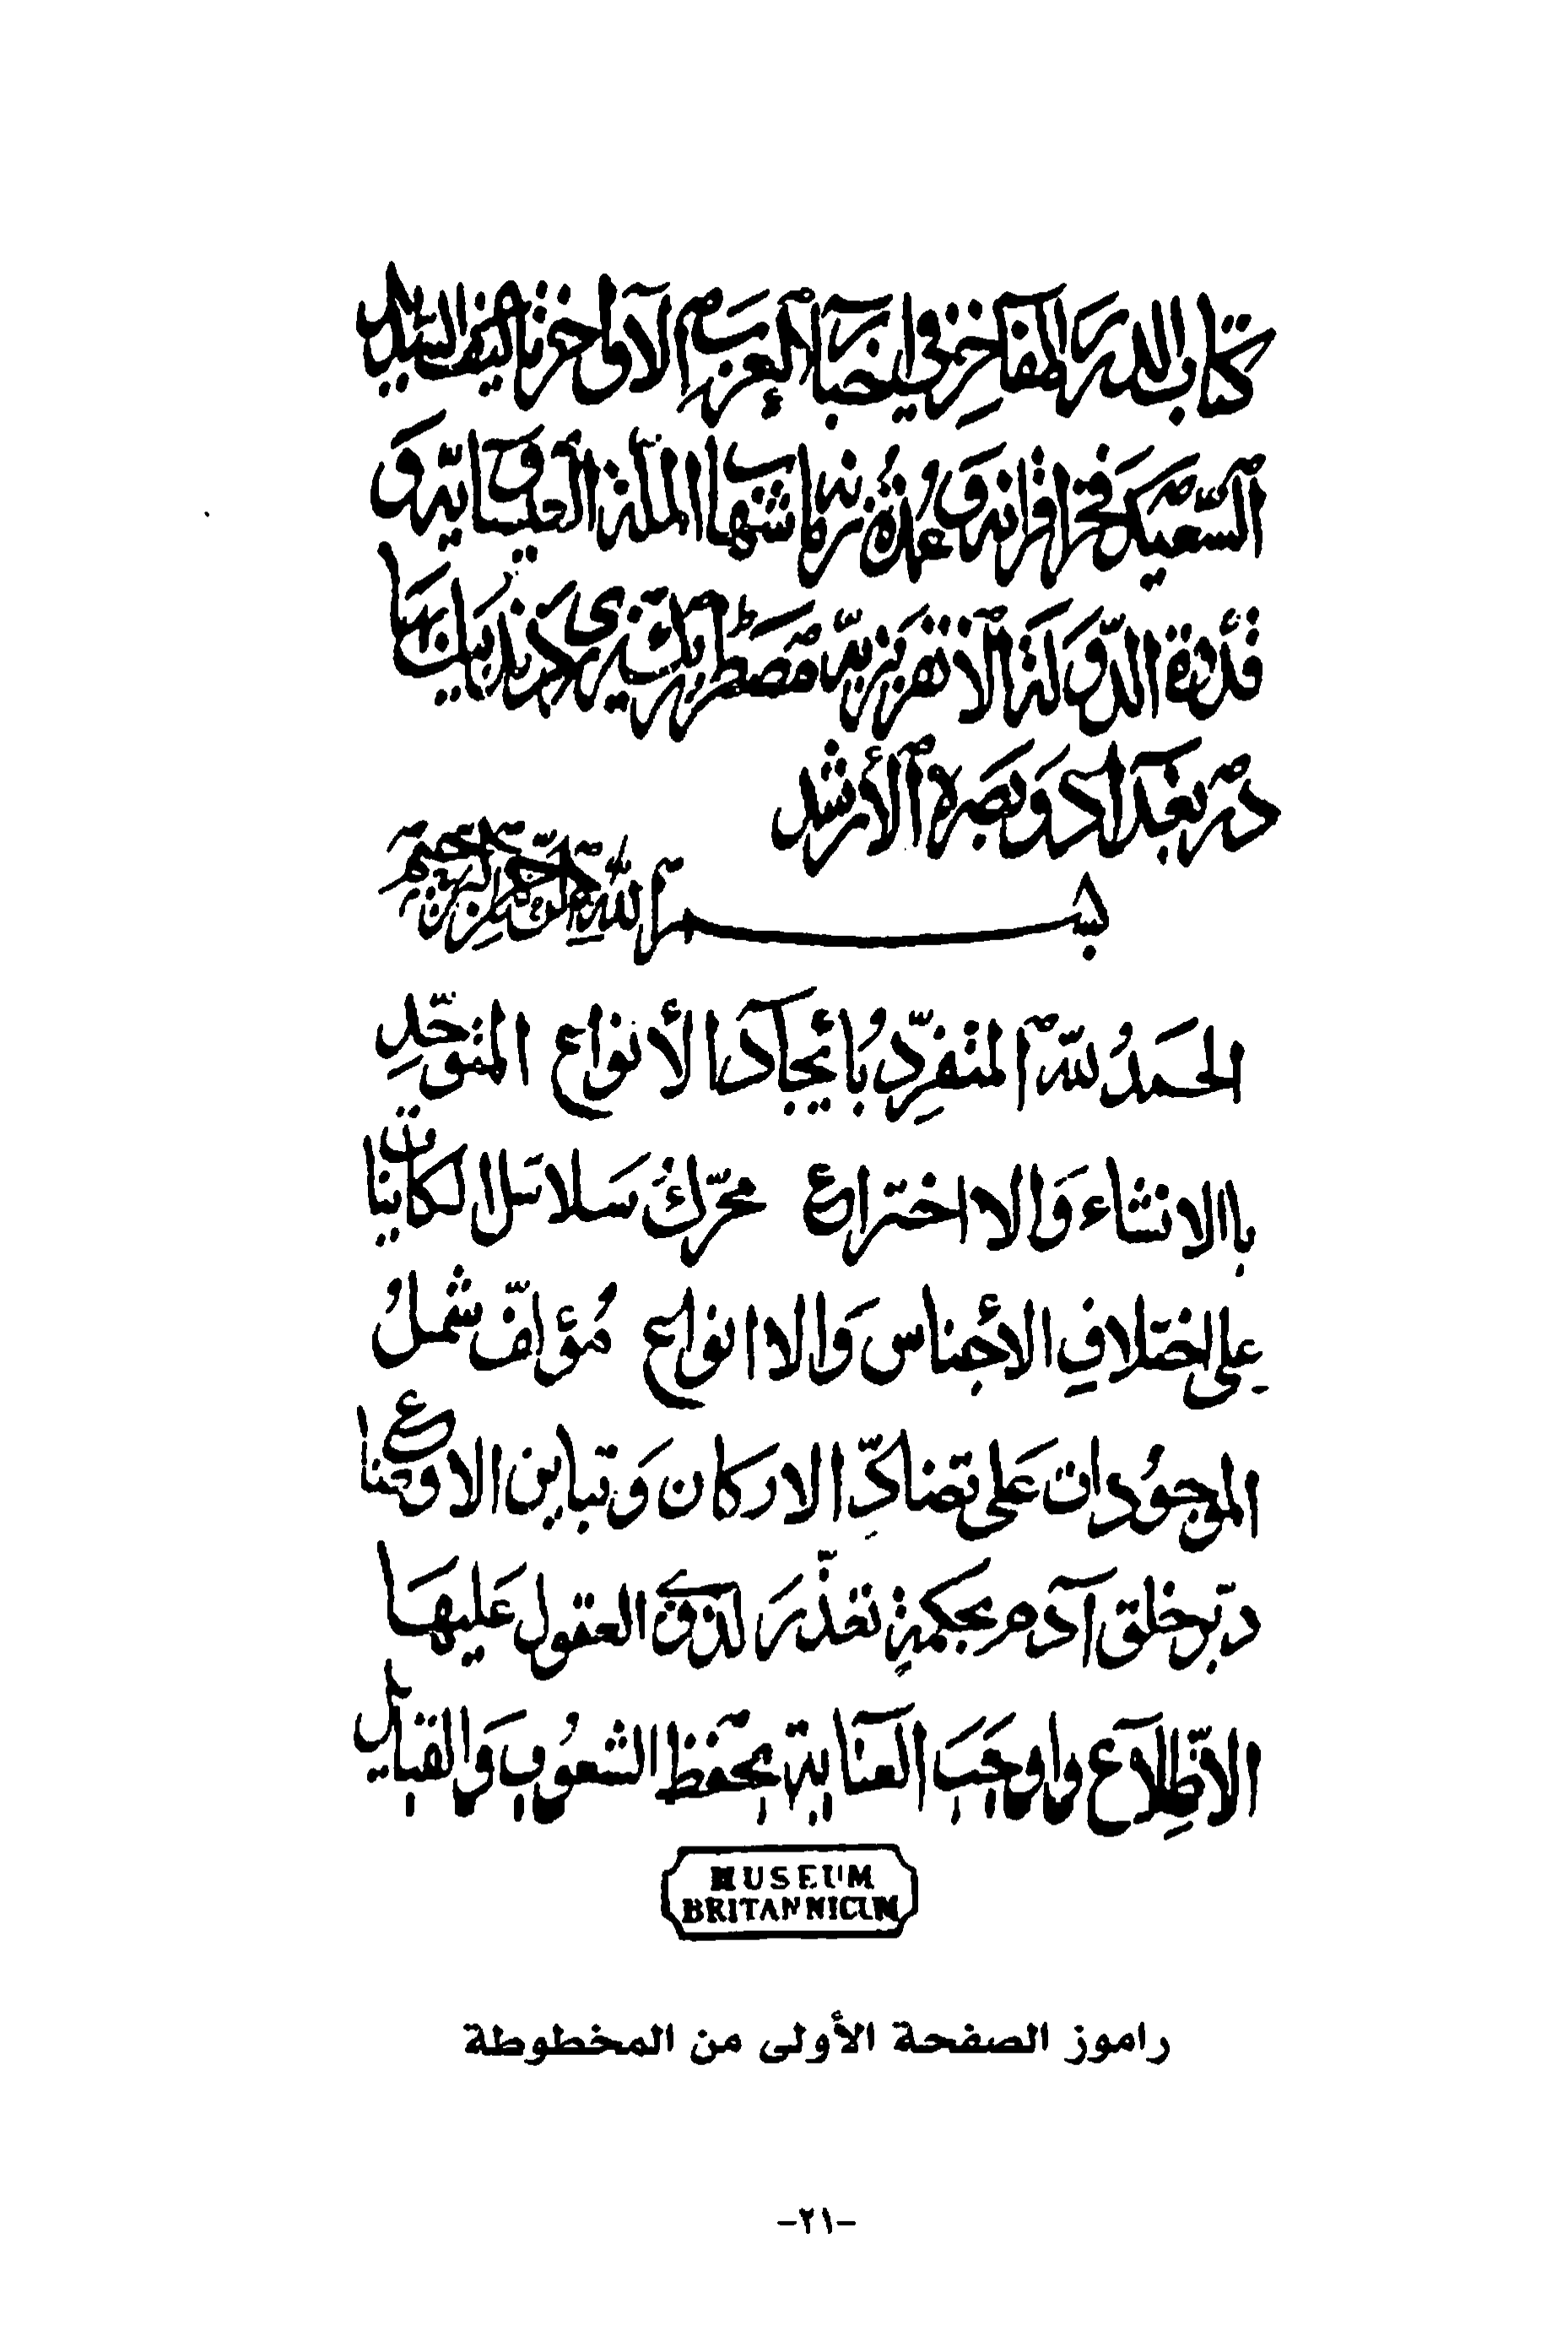 كتاب الدرر المفاخر في اخبار العرب الاواخر تأليف السيد
السعيد فخر اقرانه وعمدة زمانه شهاب الملة العلية و
قدوة الدولة الانقريزية
در بغداد وبصرة الأرشد
بسم الله الرحمن الرحيم
الحمدُ لله المتفرّد بأيجاد الأنواع المتوحّدِ
باالانشاء والااختراع محرّك سلاسل الكاينات
على اختلافِ الأجناس والاانواع مُؤلّف شملُ
الموجُودات على تضادّ الاركان وتباين الاوضاع
دبّر خلق آدم بحكمةٍ تعذّر لذوي العقول عليها
الاطّلاع واوجب العناية بحفظ الشعُوب والقبايل
MUSEUM
BRITANNICUM
راموز الصفحة الأولى من المخطوطة
-٢١-